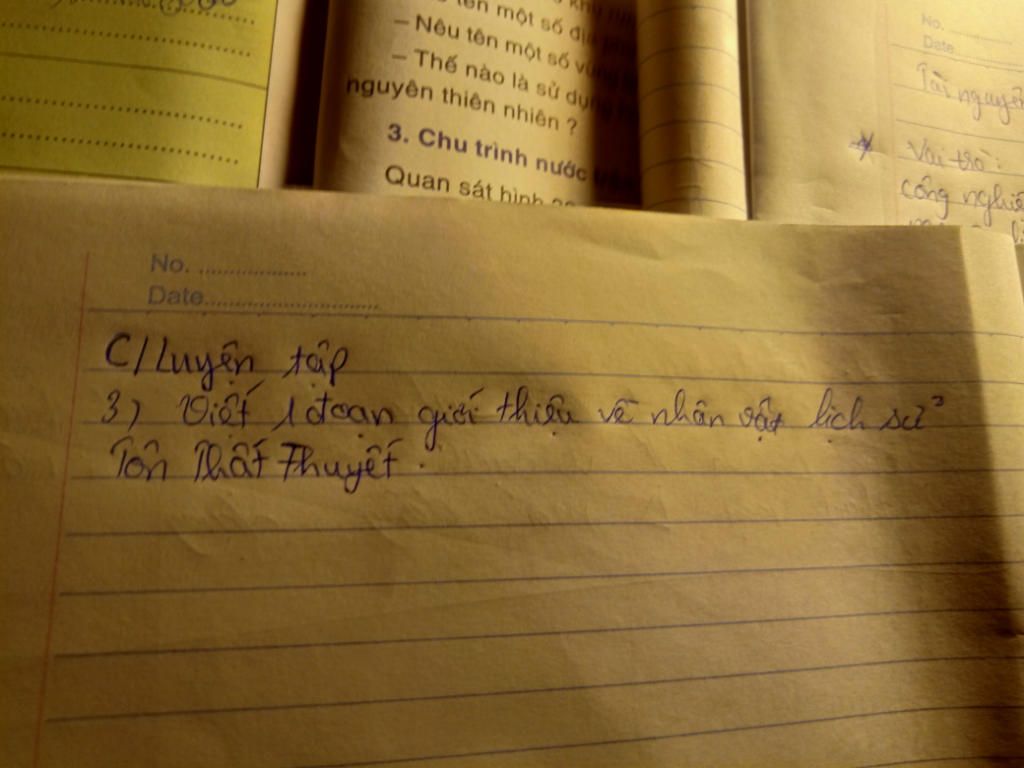 tên một số địa
– Nêu tên một số vùng
– Thế nào là sử dụng
nguyên thiên nhiên ?
3. Chu trình nước
Quan sát hình
No.
Date
Tài nguyên
Vai trò:
công nghiệ
No. ..................
Date.............................
C/Luyện tập
3) Viết 1 đoạn giới thiệu về nhân vật lịch sử
Tôn Thất Thuyết.